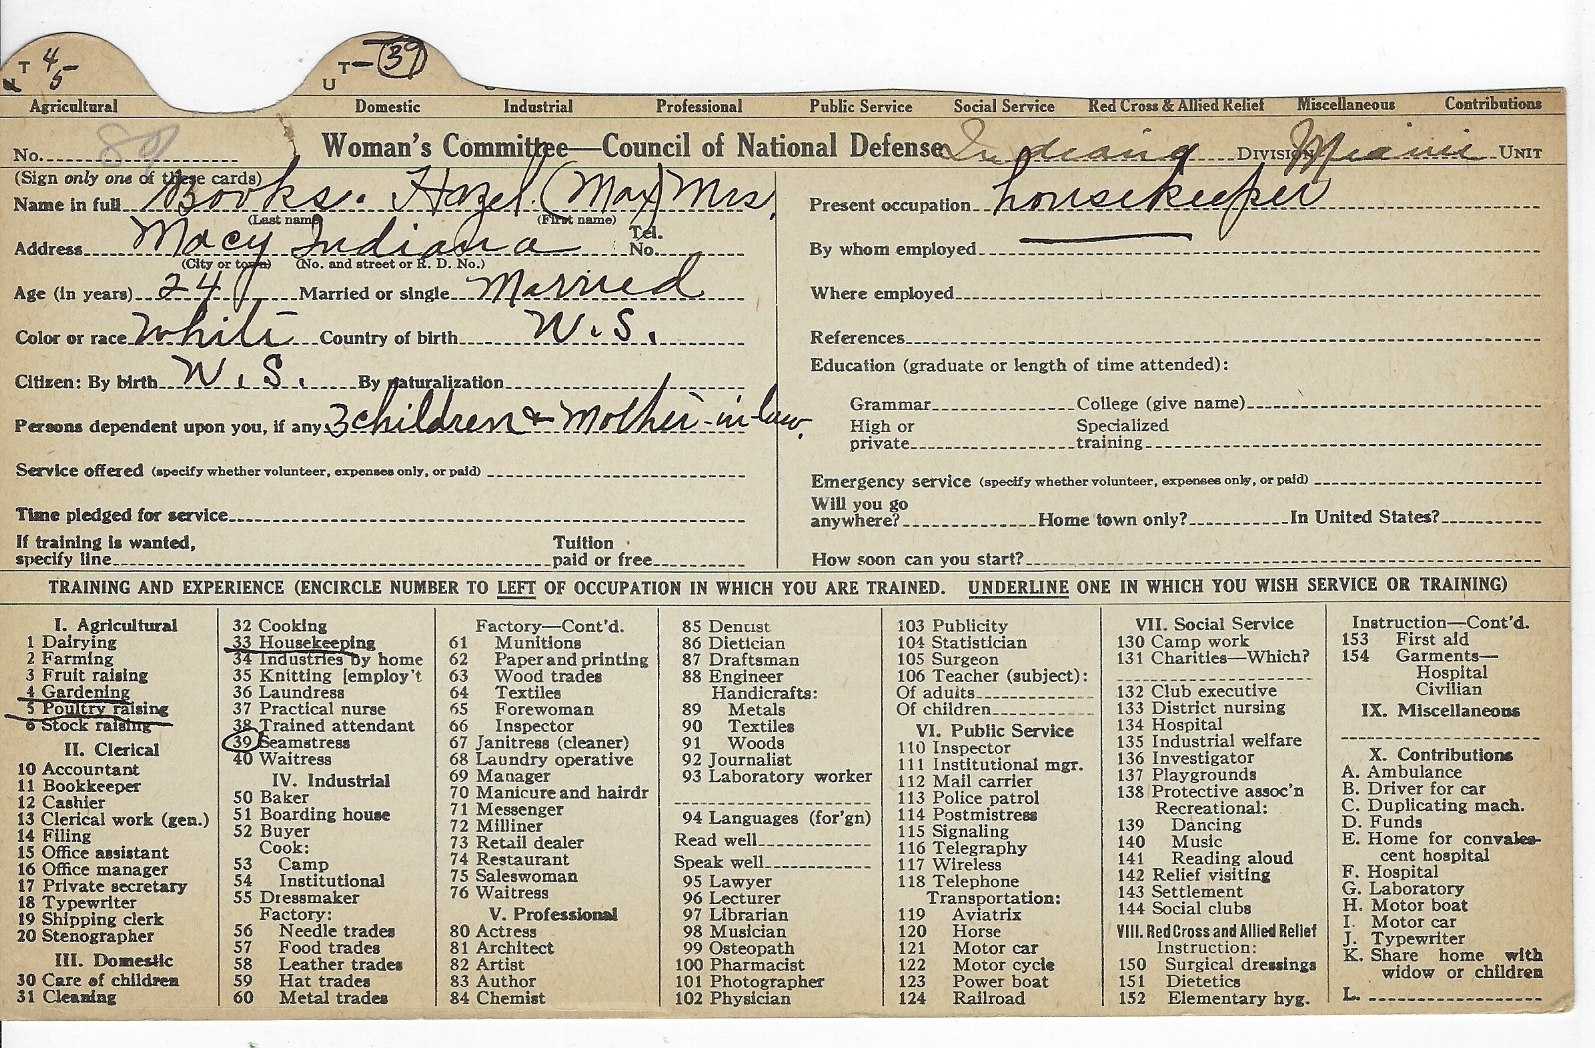 T 4 5
T—39
U
Agricultural Domestic Industrial Professional Public Service Social Service Red Cross & Allied Relief Miscellaneous Contributions
No. 89 Woman's Committee—Council of National Defense Indiana DIVISION Miami UNIT
(Sign only one of these cards)
Name in full Books. Hazel (Max) Mrs.
(Last name) (First name)
Address Macy Indiana Tel. No.
(City or town) (No. and street or R. D. No.)
Age (in years) 24 Married or single Married
Color or race White Country of birth U.S.
Citizen: By birth U.S. By naturalization
Persons dependent upon you, if any 3 children & Mother-in-law.
Service offered (specify whether volunteer, expenses only, or paid)
Time pledged for service
If training is wanted, specify line Tuition paid or free
Present occupation housekeeper
By whom employed
Where employed
References
Education (graduate or length of time attended):
Grammar College (give name)
High or private Specialized training
Emergency service (specify whether volunteer, expenses only, or paid)
Will you go anywhere? Home town only? In United States?
How soon can you start?
TRAINING AND EXPERIENCE (ENCIRCLE NUMBER TO LEFT OF OCCUPATION IN WHICH YOU ARE TRAINED. UNDERLINE ONE IN WHICH YOU WISH SERVICE OR TRAINING)
I. Agricultural
1 Dairying
2 Farming
3 Fruit raising
4 Gardening
5 Poultry raising
6 Stock raising
II. Clerical
10 Accountant
11 Bookkeeper
12 Cashier
13 Clerical work (gen.)
14 Filing
15 Office assistant
16 Office manager
17 Private secretary
18 Typewriter
19 Shipping clerk
20 Stenographer
III. Domestic
30 Care of children
31 Cleaning
32 Cooking
33 Housekeeping
34 Industries by home
35 Knitting [employ't
36 Laundress
37 Practical nurse
38 Trained attendant
39 Seamstress
40 Waitress
IV. Industrial
50 Baker
51 Boarding house
52 Buyer
Cook:
53 Camp
54 Institutional
55 Dressmaker
Factory:
56 Needle trades
57 Food trades
58 Leather trades
59 Hat trades
60 Metal trades
Factory—Cont'd.
61 Munitions
62 Paper and printing
63 Wood trades
64 Textiles
65 Forewoman
66 Inspector
67 Janitress (cleaner)
68 Laundry operative
69 Manager
70 Manicure and hairdr
71 Messenger
72 Milliner
73 Retail dealer
74 Restaurant
75 Saleswoman
76 Waitress
V. Professional
80 Actress
81 Architect
82 Artist
83 Author
84 Chemist
85 Dentist
86 Dietician
87 Draftsman
88 Engineer
Handicrafts:
89 Metals
90 Textiles
91 Woods
92 Journalist
93 Laboratory worker
94 Languages (for'gn)
Read well
Speak well
95 Lawyer
96 Lecturer
97 Librarian
98 Musician
99 Osteopath
100 Pharmacist
101 Photographer
102 Physician
103 Publicity
104 Statistician
105 Surgeon
106 Teacher (subject):
Of adults
Of children
VI. Public Service
110 Inspector
111 Institutional mgr.
112 Mail carrier
113 Police patrol
114 Postmistress
115 Signaling
116 Telegraphy
117 Wireless
118 Telephone
Transportation:
119 Aviatrix
120 Horse
121 Motor car
122 Motor cycle
123 Power boat
124 Railroad
VII. Social Service
130 Camp work
131 Charities—Which?
132 Club executive
133 District nursing
134 Hospital
135 Industrial welfare
136 Investigator
137 Playgrounds
138 Protective assoc'n
Recreational:
139 Dancing
140 Music
141 Reading aloud
142 Relief visiting
143 Settlement
144 Social clubs
VIII. Red Cross and Allied Relief
Instruction:
150 Surgical dressings
151 Dietetics
152 Elementary hyg.
Instruction—Cont'd.
153 First aid
154 Garments—
Hospital
Civilian
IX. Miscellaneous
X. Contributions
A. Ambulance
B. Driver for car
C. Duplicating mach.
D. Funds
E. Home for convales-
cent hospital
F. Hospital
G. Laboratory
H. Motor boat
I. Motor car
J. Typewriter
K. Share home with
widow or children
L.